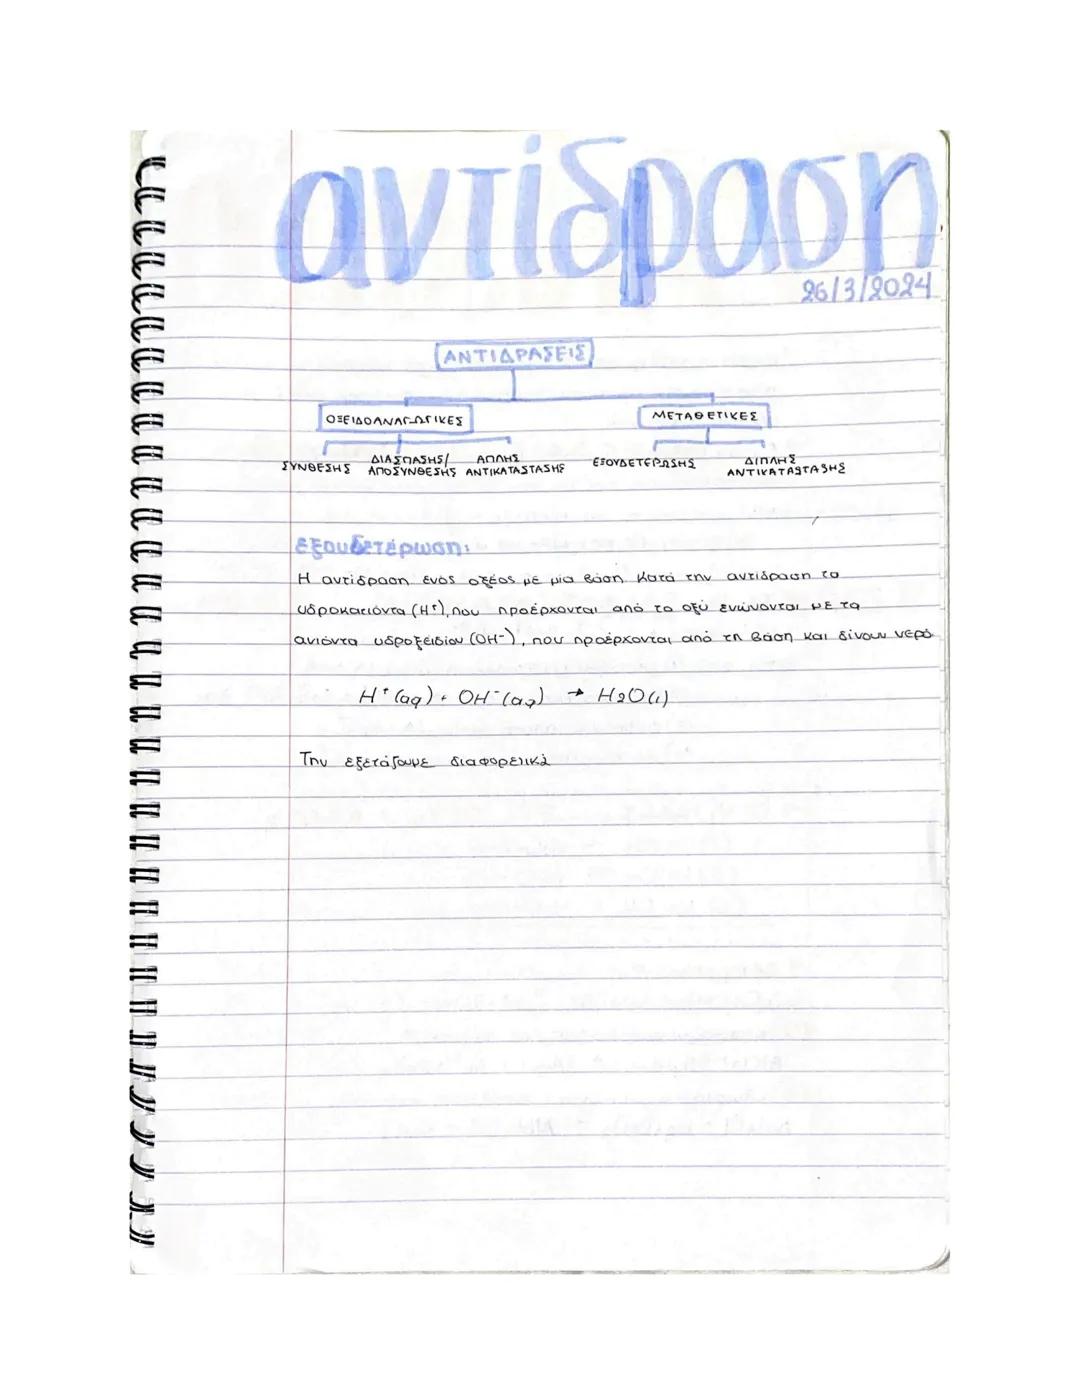 αντίδραση
26/3/2024
ΑΝΤΙΔΡΑΣΕΙΣ
ΟΞΕΙΔΟΑΝΑΓΩΓΙΚΕΣ ΜΕΤΑΘΕΤΙΚΕΣ
ΣΥΝΘΕΣΗΣ ΔΙΑΣΠΑΣΗΣ/ ΑΠΟΣΥΝΘΕΣΗΣ ΑΠΛΗΣ ΑΝΤΙΚΑΤΑΣΤΑΣΗΣ ΕΞΟΥΔΕΤΕΡΩΣΗΣ ΔΙΠΛΗΣ ΑΝΤΙΚΑΤΑΣΤΑΣΗΣ
εξουδετέρωση:
Η αντίδραση ενός οξέος με μία βάση. Κατά την αντίδραση τα
υδροκατιόντα (H⁺), που προέρχονται από το οξύ ενώνονται με τα
ανιόντα υδροξειδίου (OH⁻), που προέρχονται από τη βάση και δίνουν νερό
H⁺(aq) + OH⁻(aq) → H2O(l)
Την εξετάζουμε διαφορετικά